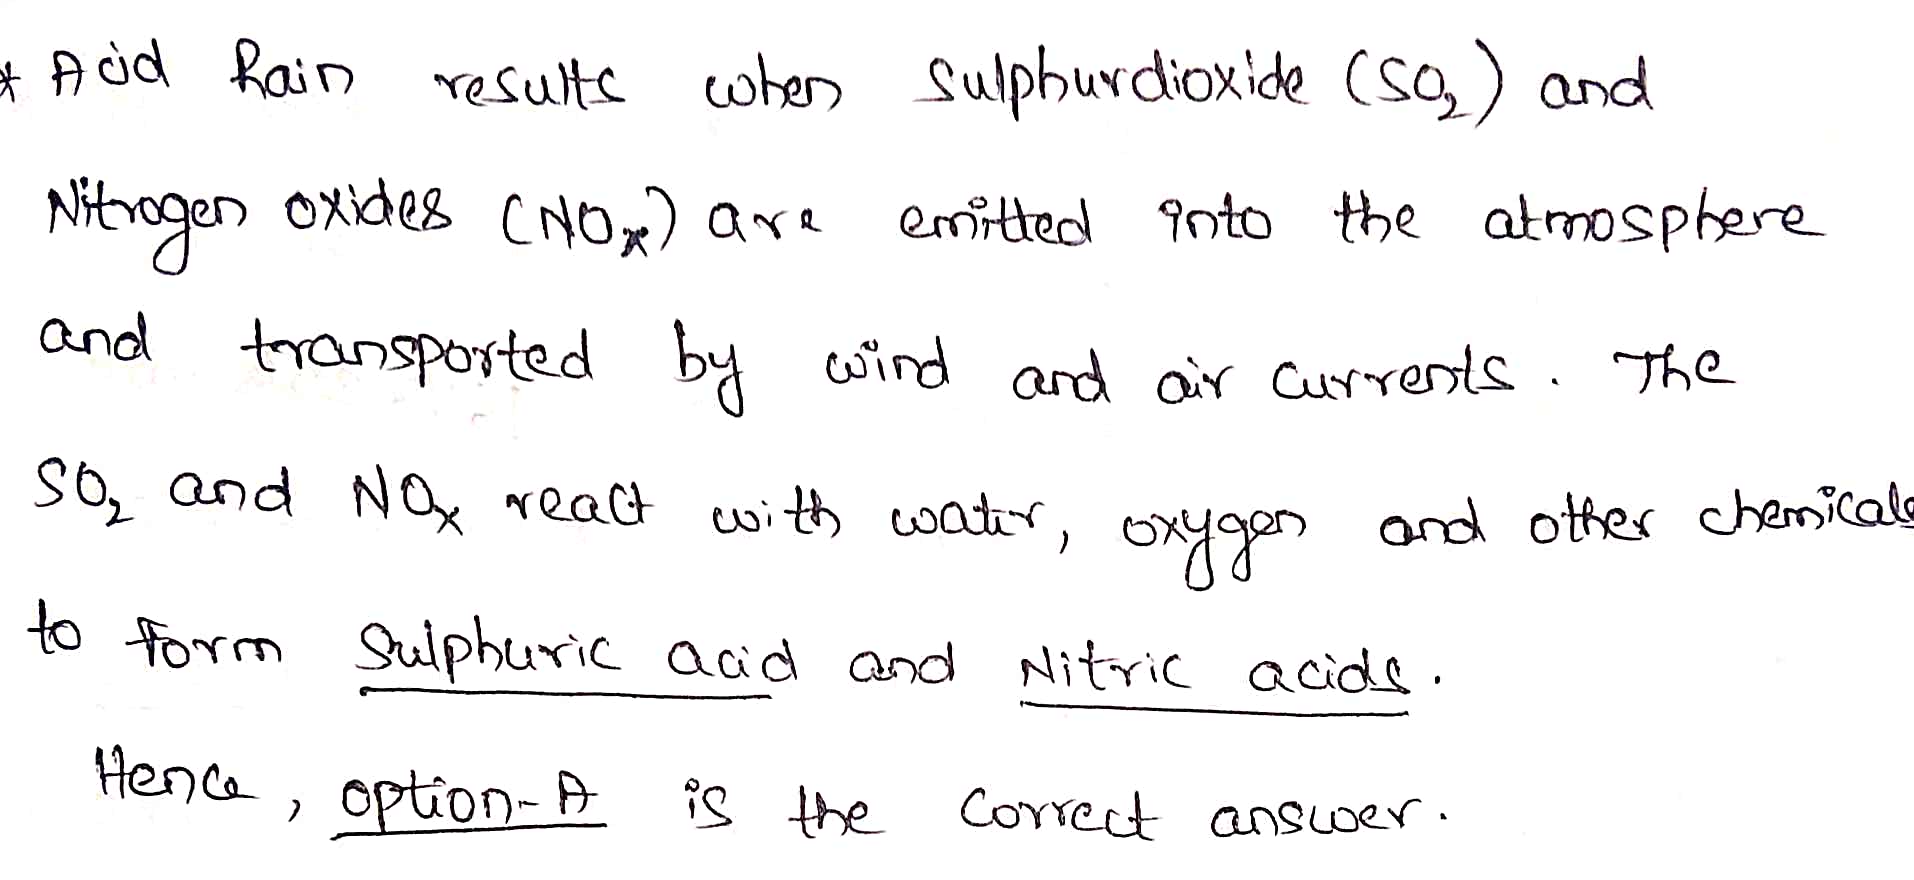 * Acid Rain results when Sulphurdioxide (SO₂) and
Nitrogen oxides (NOₓ) are emitted into the atmosphere
and transported by wind and air currents. The
SO₂ and NOₓ react with water, oxygen and other chemicals
to form Sulphuric acid and Nitric acids.
Hence, option-A is the correct answer.